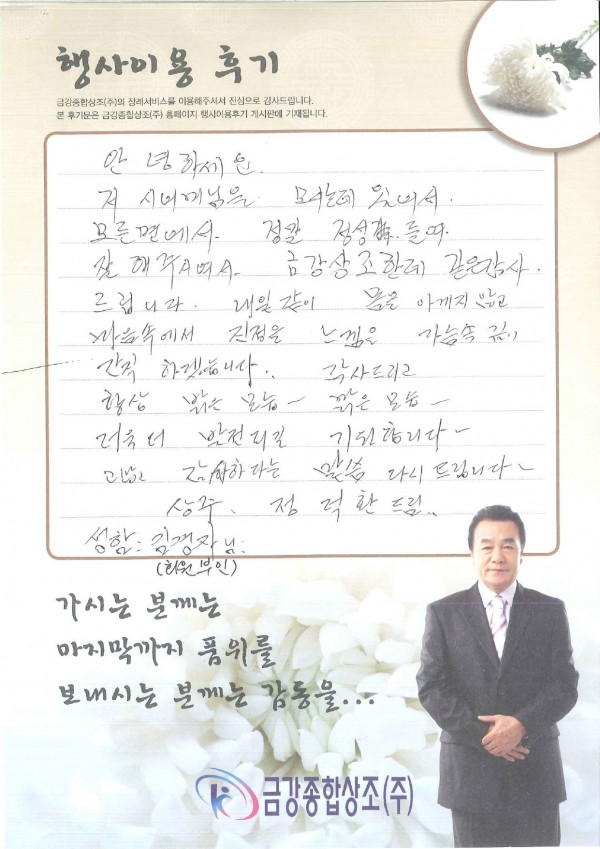 행사이용 후기
금강종합상조(주)의 장례서비스를 이용해주셔서 진심으로 감사드립니다.
본 후기문은 금강종합상조(주) 홈페이지 행사이용후기 게시판에 기재됩니다.
안녕하세요
저 시어머님을 모시는데 있어서.
모든면에서. 정말 정성 들여
잘 해주셔서. 금강상조한테 깊은감사.
드립니다. 내일같이 몸을 아끼지 않고
마음속에서 진정을 느낌을 가슴속 깊이
간직 하겠습니다.. 감사드리고
항상 밝은 모습~ 젊은 모습~
더욱더 발전되길 기원합니다~
고맙고 감사하다는 말씀 다시 드립니다~
상주. 정 덕환 드림..
성함: 김경자님.
(회원부인)
가시는 분께는
마지막까지 품위를
보내시는 분께는 감동을...
금강종합상조(주)